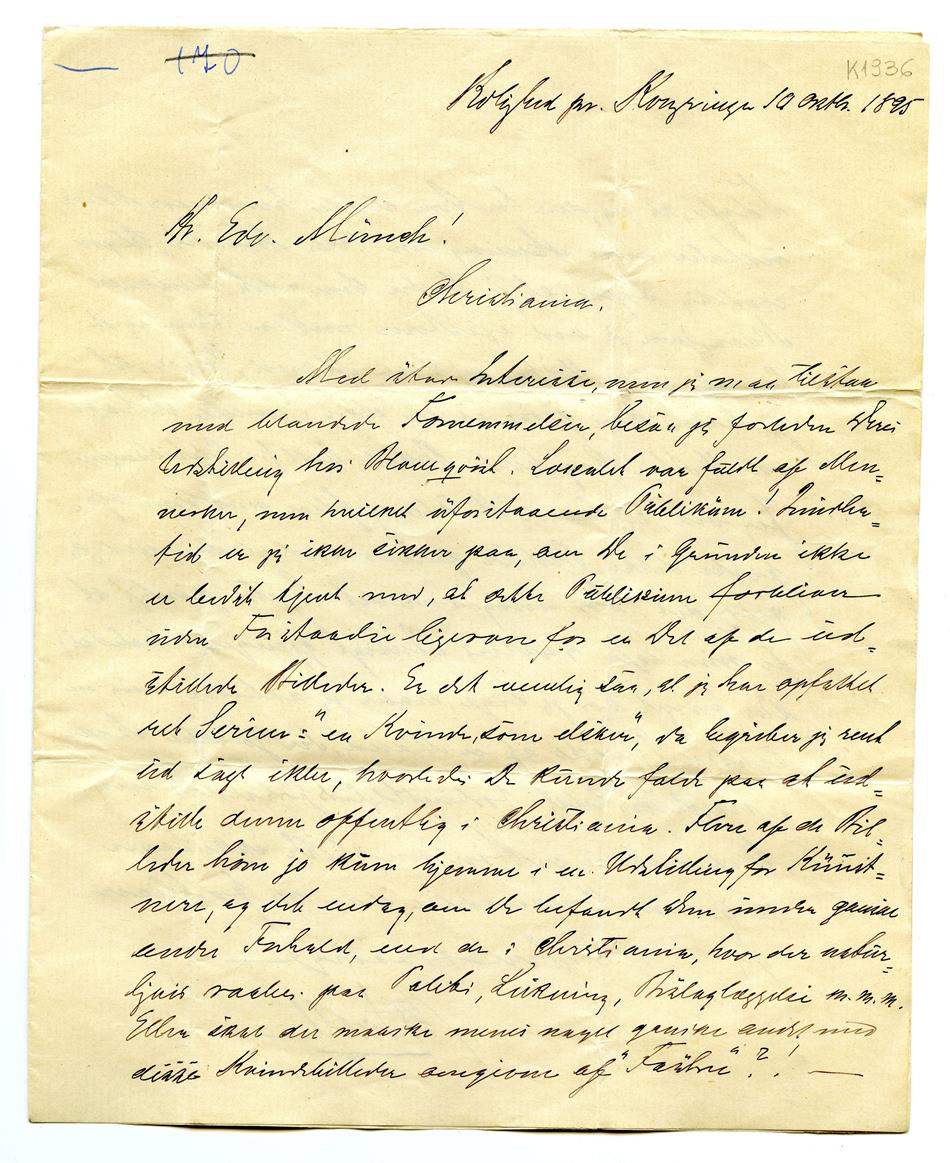 170
K1936
Rolighed pr. Kongsvinger 10 Oktbr. 1895
Hr. Edv. Münch!
Christiania.
Med stor Interesse, men jeg maa tilstaa
med blandede Fornemmelser, besaa jeg forleden Deres
Udstilling hos Blomqvist. Localet var fuldt af Men-
nesker, men hvilket uforstaaende Publikum! Imidler-
tid er jeg ikke sikker paa, om De i Grunden ikke
er bedst tjent med, at dette Publikum forbliver
uden Forstaaelse ligeovenfor en Del af de ud-
stillede Billeder. Er det nemlig saa, at jeg har opfattet
ret Serien: "en Kvinde, som elsker", da begriber jeg rent
ud sagt ikke, hvorledes De kunde falde paa at ud-
stille denne offentlig i Christiania. Flere af de Bil-
leder høre jo kun hjemme i en Udstilling for Kunst-
nere, og det endog, om De befandt Dem under ganske
andre Forhold, end de i Christiania, hvor der natur-
ligvis raabes paa Politi, Lukning, Beslaglæggelse m. m. m.
Eller skal der maaske menes noget ganske andet med
disse Kvindebilleder omgivne af "Faühne"?! —